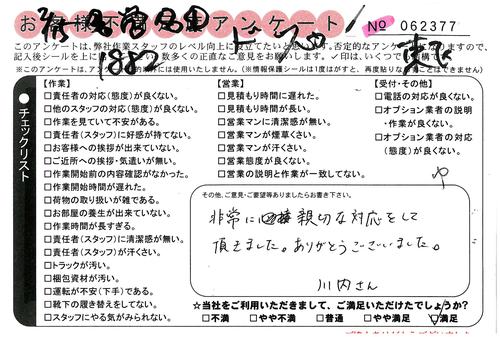 お客様不満足度アンケート
№ 062377
このアンケートは、弊社作業スタッフのレベル向上に役立てたいと思います。否定的なアンケートになりますので、
188
【作業】
□責任者の対応(態度)が良くない。
□他のスタッフの対応(態度)が良くない。
□作業を見ていて不安がある。
□責任者(スタッフ)に好感が持てない。
□お客様への挨拶が出来ていない。
□ご近所への挨拶・気遣いが無い。
□作業開始前の内容確認がなかった。
□作業開始時間が遅れた。
□荷物の取り扱いが雑である。
□お部屋の養生が出来ていない。
□作業時間が長すぎる。
□責任者(スタッフ)に清潔感が無い。
□責任者(スタッフ)が汗くさい。
□トラックが汚い。
□梱包資材が汚い。
□運転が不安(下手)である。
□靴下の履き替えをしてない。
□スタッフにやる気がみられない。
【営業】
□見積もり時間に遅れた。
□見積もり時間が長い。
□営業マンに清潔感が無い。
□営業マンが煙草くさい。
□営業マンが汗くさい。
□営業態度が良くない。
□営業の説明と作業が一致してない。
【受付・その他】
□電話の対応が良くない。
□オプション業者の説明
・作業が良くない。
□オプション業者の対応
(態度)が良くない。
●チェックリスト
その他、ご意見・ご要望等ありましたらお書き下さい。
非常に 親切な対応をして
頂きました。ありがとうございました。
川内さん
☆当社をご利用いただきまして、ご満足いただけたでしょうか?
□不満 □やや不満 □普通 □やや満足 ☑満足